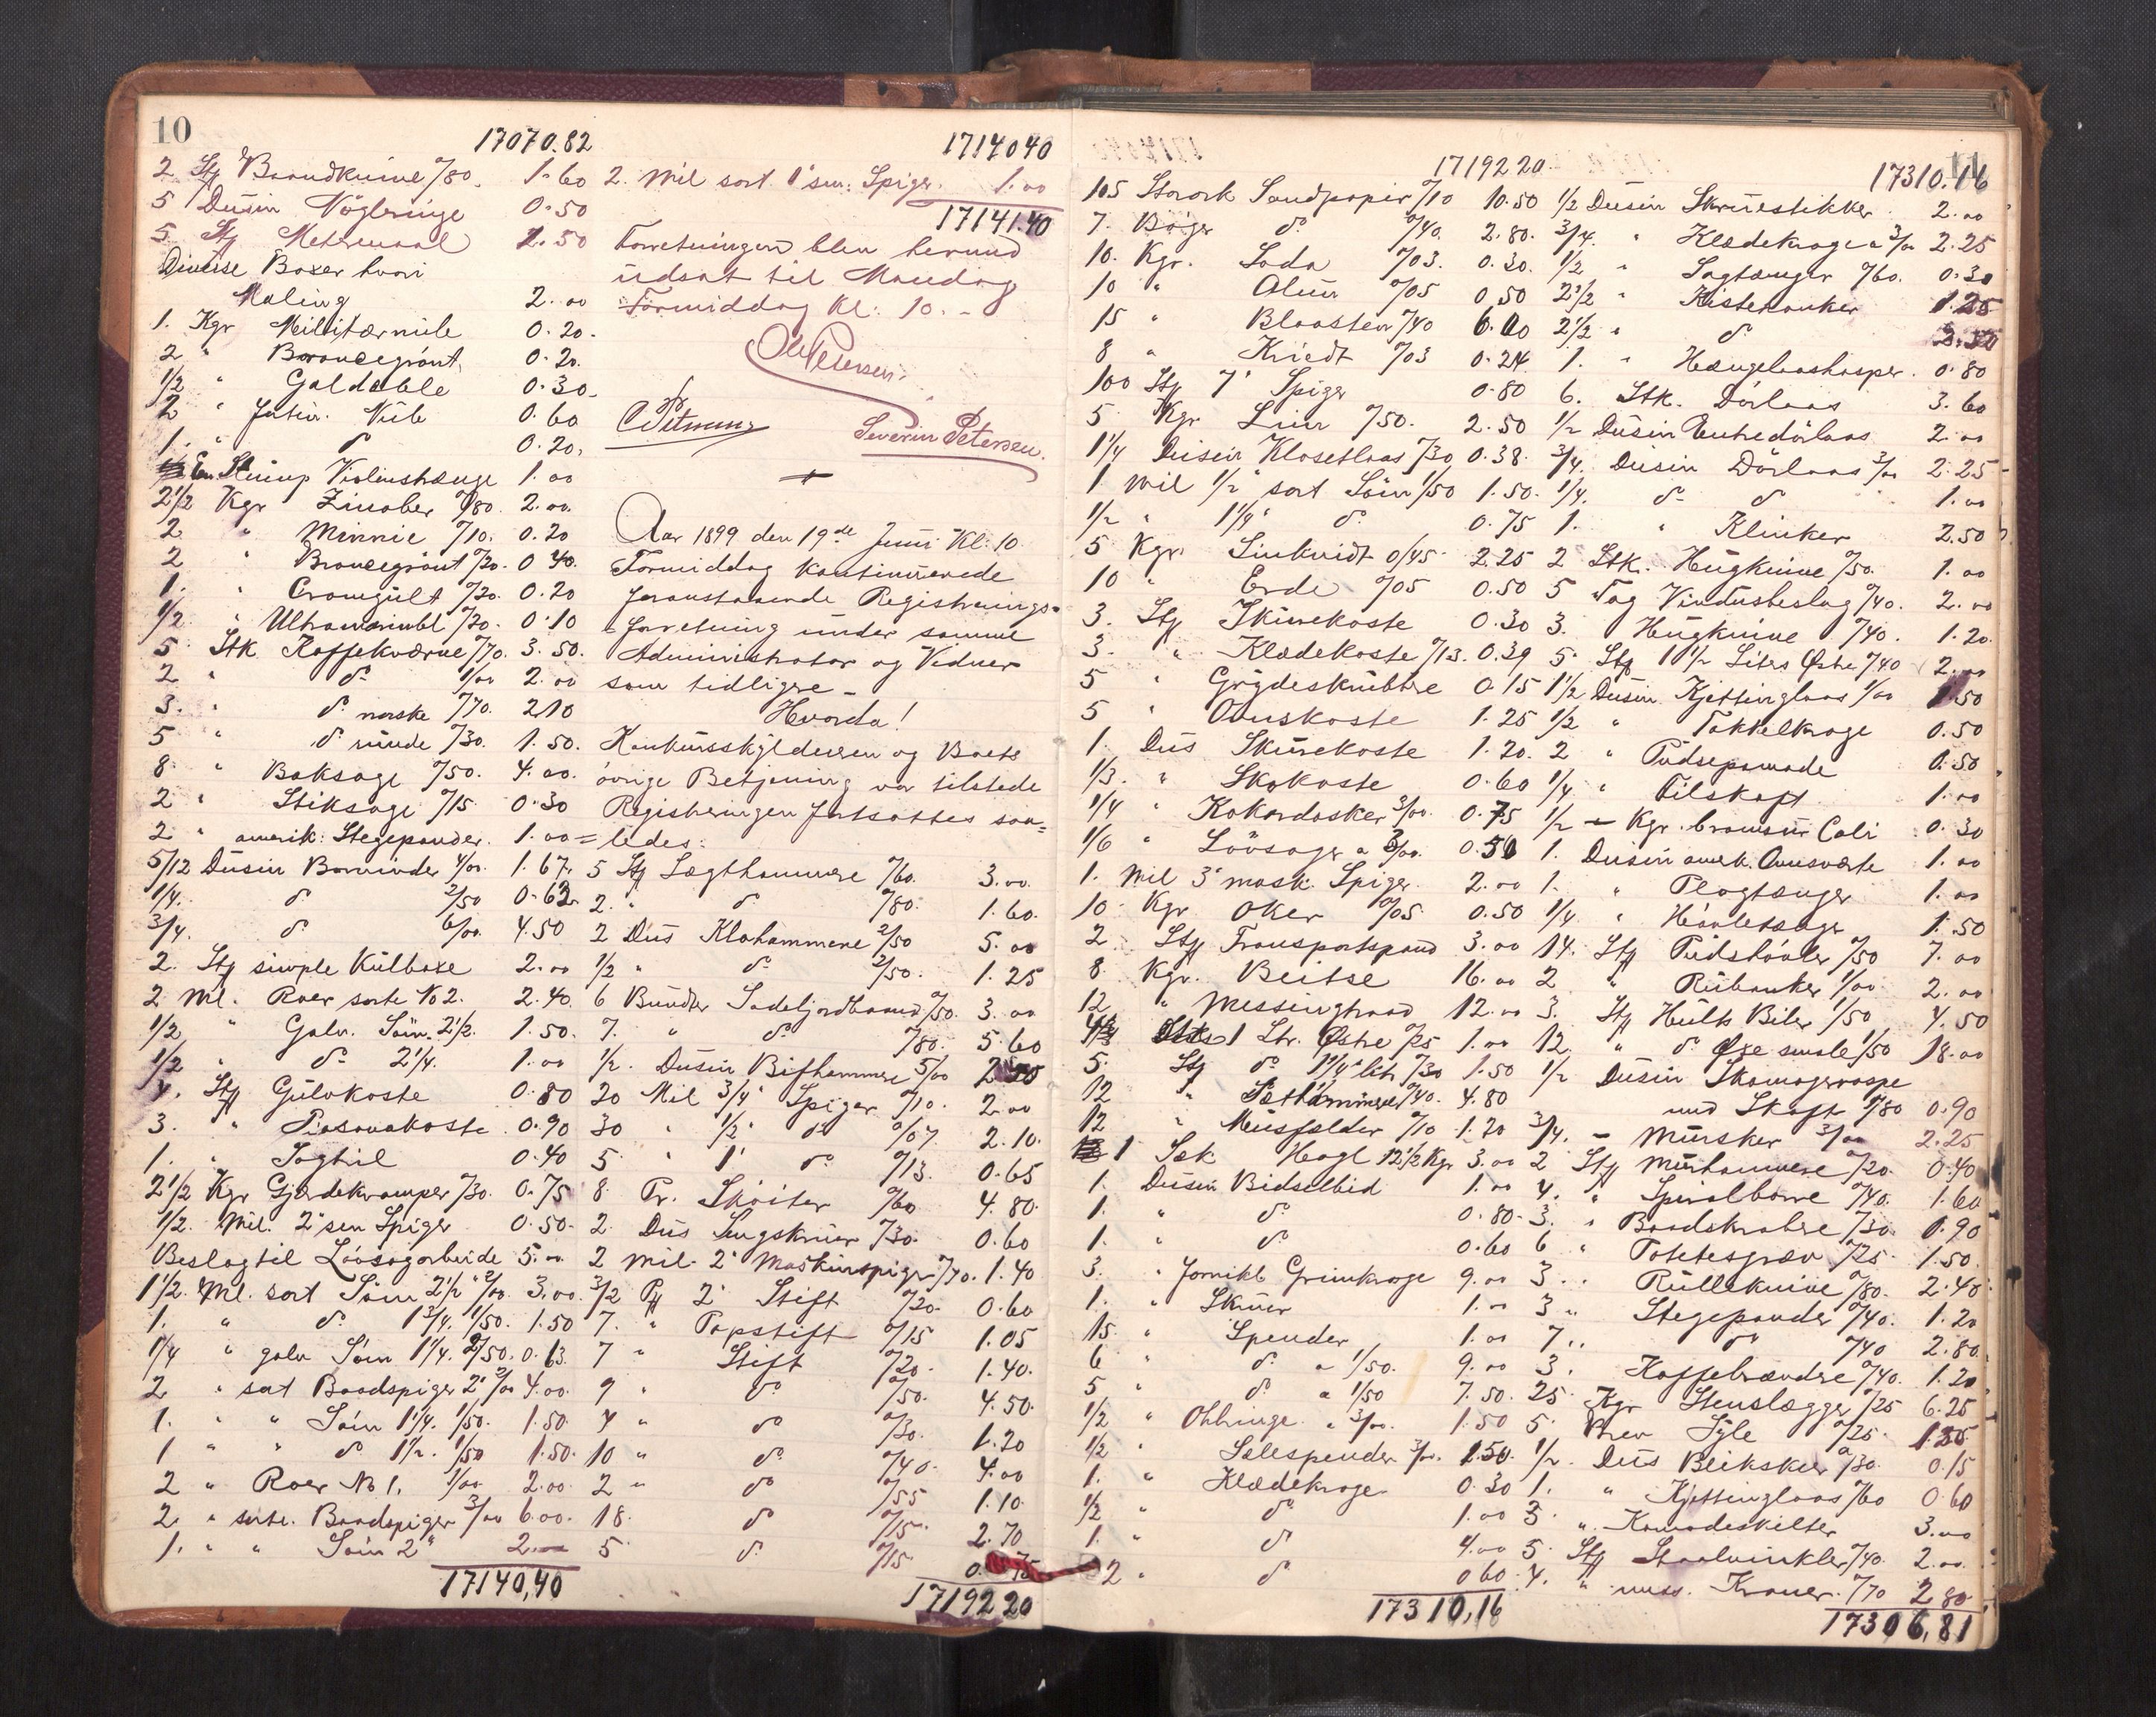 10
17070.82
2 Stk Brandknive %80. 1.60
5 Dusin Nögleringe 0.50
5 Stk Metermaal 2.50
Diverse Boxer hvori
Maling 2.00
1. Kgr Militærnile 0.20.
2 " Broncegrönt 0.20.
1/2 " 0.30
2 " 0.60
1. " d° 0.20.
1.00
2 1/2 Kgr Zinober %80. 2.00.
2 " Minnie %10. 0.20
2 " Broncegrönt %20. 0.40.
1. " Cromgült %20. 0.20
1/2 " Ultramarinbl %20. 0.10
5 Stk Kaffekværne %70. 3.50.
2 " d° 1/00 2.00
3. " d° norske %70. 2.10
5 " d° runde %30. 1.50.
8 " Baksage %50. 4.00.
2 " Stiksage %15 0.30
2 " amerik: Stegepander. 1.00
5/12 Dusin Borvinder 4/00. 1.67.
1/4. d° 2/50 0.63
3/4. d° 6/00. 4.50
2. Stk simple Kulboxe 2.00
2 Ml. Roer sorte No 2. 2.40.
1/2 " Galv. Söm. 2 1/2. 1.50.
1/2 " d° 2 1/4. 1.00
4. Stk Gulvkoste 0.80
3. " Piasavakoste 0.90
1. " 0.40
2 1/2 Kgr Gjerdekramper %30. 0.75
1/2. Mil. 2" sm Spiger 0.50.
Beslag til Lövsagarbeide 5.00
1 1/2. Ml. sort Söm 2 1/2" 2/00. 3.00.
1. " d° 1 3/4. 1/50. 1.50
1/4 " galv Söm 1 1/4. 2/50. 0.63.
2 " sort Baadspiger 2" 2/00 4.00.
1. " " Söm 1 1/4. 1/50. 1.50
1 " " d° 1 1/2. 1/50 1.50.
2 " Roer No 1. 1/00 2.00
2. " sorte. Baadspiger 3/00 6.00.
1. " " Söm 2" 2.—
17140,40
1714040
2. Mil sort 1" sm: Spiger. 1.00
17141.40
Forretningen blev herund
udsat til Mandag
Formiddag Kl: 10.-
Ole Petersen.
Severin Petersen.
Aar 1899 den 19de Juni Kl: 10
Formiddag kontinuerede
foranstaaende Registrerings-
forretning under samme
Administrator og Vidner
som tidligere -
Hvorda!
Konkursskyldneren og Boets
övrige Betjening var tilstede
Registreringen fortsattes saa=
=ledes:
5 Stk Lægthammere %60. 3.00.
2. " d° %80. 1.60.
2 Dus Klohammere 2/50 5.00
1/2 " d° 2/50. 1.25
6 Bundter Sadelgjordbaand %50. 3.00
7. " d° %80. 5.60
1/2. Dusin Bifhammere 5/00 2.50
20 Mil 3/4" Spiger %10. 2.00
30 " 1/2" d° %07 2.10.
5 " 1" d° %13. 0.65
8 Pr. Sköiter %60 4.80.
2. Dus Sengskruer %30. 0.60
2 Mil. 2" Maskinspiger %70. 1.40
3/2 Pk 2" Stift %20. 0.60
7. " Papstift %15 1.05
7 " Stift %20. 1.40.
9 " d° %50. 4.50.
4 " d° %30. 1.20
10 " d° %40. 4.00
2 " d° %55 1.10.
18. d° %15. 2.70
5 d° %15 0.75
17192 20
17192 20.
105 Stk Sandpapir %10 10.50
7. Böger d° %40. 2.80.
10. Kgr. Soda %03. 0.30.
10 " Alun %05 0.50
15 " Blaasten %40 6.00
8 " Kridt %03 0.24
100 Stk 7" Spiger 0.80
5 Kgr Liim %50. 2.50
1 1/4 Dusin Klosetlaas %30 0.38.
1 Mil 1/2" sort Söm 1/50 1.50.
1/2 " 1 1/4" d° 0.75
5 Kgr Sinkvidt 0/45 2.25
10 " Erde %05 0.50
3. Stk Skurekoste 0.30
3. " Klædekoste %13. 0.39
5 " Grydeskrubbe 0.15
5 " Ovnskoste 1.25
1. Dus Skurekoste 1.20.
1/3. " Skokoste 0.60
1/4 " Kokardasker 3/00. 0.75
1/6 " Lövsager a 3/00. 0.50
1. Mil 3" mask. Spiger. 2.00
10. Kgr Oker %05. 0.50
2. Stk Transportspand 3.00
8. Kgr. Beitse 16.00
12 " Messingtraad 12.00
1 Ltr. Østre %25 1.00
5. Stk d° 1 1/4 litr %30 1.50
12 " %40. 4.80
12 " Musfælder %10 1.20
1 Sæk Hagl 12 1/2 Kgr 3.00
1. Dusin Bidselbid 1.00
1. " d° 0.80.
1. " d° 0.60
3. " Grimkroge 9.00
1. " Skruer 1.00
15 " Spender 1.00
6 " d° a 1/50. 9.00
5 " d° a 1/50 7.50.
1/2 " a 3/00. 1.50
1/2 " Selespender 3/00. 1.50.
1. " Klædekroge 0.30
1/2 " d° 1.00
1. " d° 4.00
2 " d° 0.60
17310,16
11
17310.16
1/2 Dusin Skruestikker. 2.00
3/4. " Klædekroge a 3/00 2.25
1/2 " Sagtænger %60. 0.30
2 1/2 " Kistehanker 1.25
2 1/2 " d° 2.50
1. " Hængelaashasper. 0.80
6. Stk. Dörlaas 3.60
1/2 Dusin Entredörlaas 2.00
3/4. Dusin Dörlaas 3/00 2.25
1/4. d° d° 1.00
1. " Klinker 2.50
2 Stk. Hugknive %50. 1.00
5 Fag Vindusbeslag %40. 2.00
3. Hugknive %40. 1.20.
5 Stk 1 1/2 Liters Østre %40 2.00
1 1/2 Dusin Kjettinglaas 1/00 1.50
1/2 " Takkelkroge 0.50
2 " Pudsepomade 0.50
1/4 " Filskaft 1.00
1/2 - Kgr. Cali 0.30
1. Dusin amrk. Ovnsværte 1.00
1. " Flagtænger 1.00
1/4 " 1.50
14. Stk Pudshövler %50 7.00
2 " Rubanker 1/00. 2.00
3. Stk Hults Biler 1/50 4.50
12. " d° Øxe smale 1/50 18.00
1/2 Dusin Skomagerraspe
med Skaft %80 0.90
3/4. - Murskeer 3/00 2.25
2 Stk Murhammere %20. 0.40
4. " Spiralborre %40. 1.60
3. " Baadskrabere %30. 0.90
6 " Potetesgrev %25. 1.50.
3. " Rulleknive %80. 2.40.
3 " Stegepander %40. 1.20
7. " d° %40 2.80.
3. Kaffebrændre %40. 1.20
25 Kgr Stenslægger %25 6.25
5 Brev Syle %25. 1.25
1/2. Dus Blikskeer %30. 0.15
1. " Kjettinglaas %60 0.60
3. " Komodeskilter 3.00
5. Stk Staalvinkler %40. 2.00.
4. " mess. Kraner. %70 2.80.
17306,81